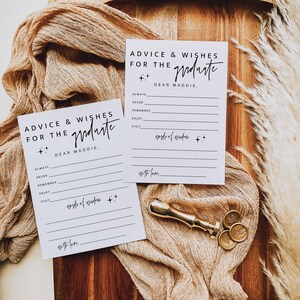 ADVICE & WISHES
FOR THE graduate
DEAR MADDIE,
ALWAYS
NEVER
REMEMBER
ENJOY
VISIT
words of wisdom
with love,
ADVICE & WISHES
FOR THE graduate
DEAR MADDIE,
ALWAYS
NEVER
REMEMBER
ENJOY
VISIT
words of wisdom
with love,